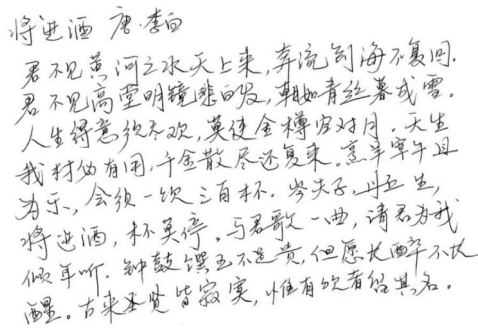 将进酒 唐·李白
君不见黄河之水天上来,奔流到海不复回.
君不见高堂明镜悲白发,朝如青丝暮成雪.
人生得意须尽欢,莫使金樽空对月.天生
我材必有用,千金散尽还复来.烹羊宰牛且
为乐,会须一饮三百杯.岑夫子,丹丘生,
将进酒,杯莫停.与君歌一曲,请君为我
倾耳听.钟鼓馔玉不足贵,但愿长醉不长
醒。古来圣贤皆寂寞,惟有饮者留其名。